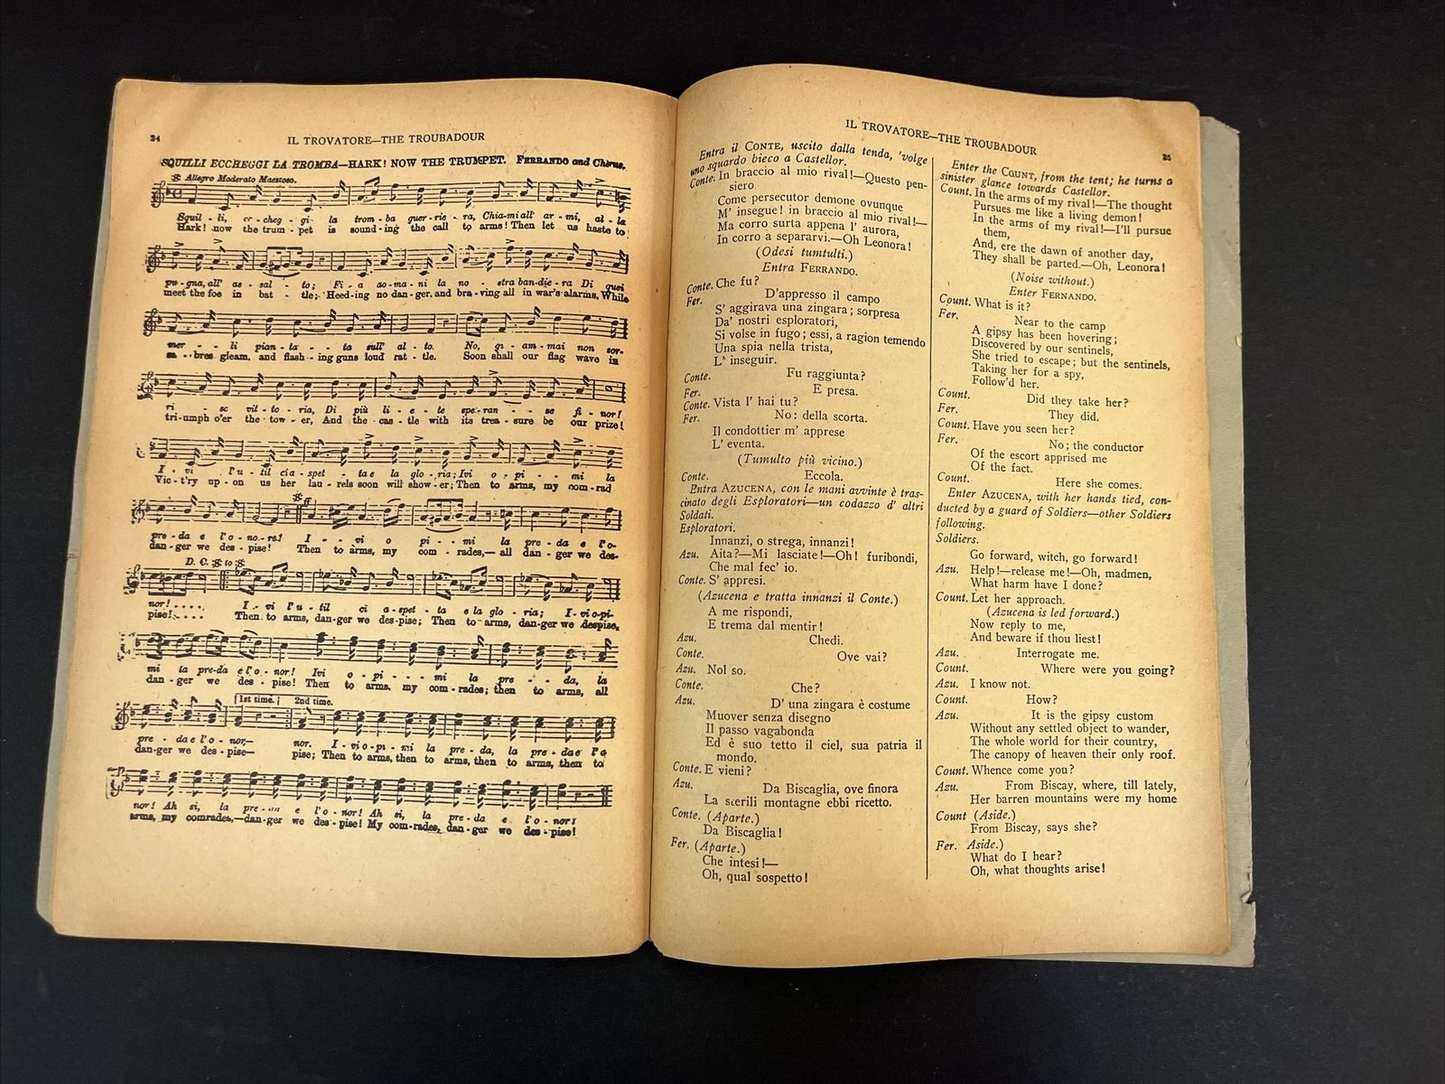 24
IL TROVATORE—THE TROUBADOUR
SQUILLI ECCHEGGI LA TROMBA—HARK! NOW THE TRUMPET. FERRANDO and Chorus.
Allegro Moderato Maestoso.
Squil - li, ec - cheg - gi la trom - ba guer - rie - ra, Chia-mi all' ar - mi, al - la
Hark! now the trum - pet is sound - ing the call to arms! Then let us haste to
pu - gna, all' as - sal - to; Fi - a do-ma - ni la no - stra ban-die - ra Di quei
meet the foe in bat - tle; Heed-ing no dan-ger, and bra-ving all in war's alarms, While
mer - li pian - ta - ta sull' al - to. No, gi - am - mai non sor-
sa - bres gleam, and flash - ing guns loud rat - tle. Soon shall our flag wave in
ri - se vit - to - ria, Di più li - e - te spe-ran - se fi - nor!
tri-umph o'er the tow - er, And the cas - tle with its trea - sure be our prize!
I - vi l'u - til cia - spet - ta e la glo - ria; Ivi o - pi - mi la
Vic - t'ry up - on us her lau - rels soon will show - er; Then to arms, my com-rad
pre - da e l'o - no - re! I - vi o pi - mi la pre - da e l'o-
dan - ger we des - pise! Then to arms, my com - rades,— all dan - ger we des-
D. C. 𝄋 to 𝄋.
nor! . . . . I - vi l'u - til ci a - spet - ta e la glo - ria; I - vi o-pi-
pise! . . . . Then to arms, dan-ger we des-pise; Then to arms, dan-ger we despise,
mi la pre-da e l'o - nor! Ivi o - pi - mi la pre - da, la
dan - ger we des - pise! Then to arms, my com - rades; then to arms, all
1st time. 2nd time.
pre - da e l'o - nor,— nor. I - vi o - pi - mi la pre - da, la pre - da e l'o
dan-ger we des - pise— pise; Then to arms, then to arms, then to arms, then to
nor! Ah si, la pre - da e l'o - nor! Ah si, la pre - da e l'o - nor!
arms, my comrades,—dan-ger we des - pise! My com-rades, dan - ger we des - pise!
IL TROVATORE—THE TROUBADOUR
25
Entra il CONTE, uscito dalla tenda, 'volge
uno sguardo bieco a Castellor.
Conte. In braccio al mio rival!—Questo pen-
siero
Come persecutor demone ovunque
M' insegue! in braccio al mio rival!—
Ma corro surta appena l' aurora,
In corro a separarvi.—Oh Leonora!
(Odesi tumtulti.)
Entra FERRANDO.
Conte. Che fu?
Fer. D'appresso il campo
S' aggirava una zingara; sorpresa
Da' nostri esploratori,
Si volse in fugo; essi, a ragion temendo
Una spia nella trista,
L' inseguir.
Conte. Fu raggiunta?
Fer. E presa.
Conte. Vista l' hai tu?
Fer. No: della scorta.
Il condottier m' apprese
L' eventa.
(Tumulto più vicino.)
Conte. Eccola.
Entra AZUCENA, con le mani avvinte è tras-
cinato degli Esploratori—un codazzo d' altri
Soldati.
Esploratori.
Innanzi, o strega, innanzi!
Azu. Aita?—Mi lasciate!—Oh! furibondi,
Che mal fec' io.
Conte. S' appresi.
(Azucena e tratta innanzi il Conte.)
A me rispondi,
E trema dal mentir!
Azu. Chedi.
Conte. Ove vai?
Azu. Nol so.
Conte. Che?
Azu. D' una zingara è costume
Muover senza disegno
Il passo vagabonda
Ed è suo tetto il ciel, sua patria il
mondo.
Conte. E vieni?
Azu. Da Biscaglia, ove finora
La sterili montagne ebbi ricetto.
Conte. (Aparte.)
Da Biscaglia!
Fer. (Aparte.)
Che intesi!—
Oh, qual sospetto!
Enter the COUNT, from the tent; he turns a
sinister glance towards Castellor.
Count. In the arms of my rival!—The thought
Pursues me like a living demon!
In the arms of my rival!—I'll pursue
them,
And, ere the dawn of another day,
They shall be parted.—Oh, Leonora!
(Noise without.)
Enter FERNANDO.
Count. What is it?
Fer. Near to the camp
A gipsy has been hovering;
Discovered by our sentinels,
She tried to escape; but the sentinels,
Taking her for a spy,
Follow'd her.
Count. Did they take her?
Fer. They did.
Count. Have you seen her?
Fer. No; the conductor
Of the escort apprised me
Of the fact.
Count. Here she comes.
Enter AZUCENA, with her hands tied, con-
ducted by a guard of Soldiers—other Soldiers
following.
Soldiers.
Go forward, witch, go forward!
Azu. Help!—release me!—Oh, madmen,
What harm have I done?
Count. Let her approach.
(Azucena is led forward.)
Now reply to me,
And beware if thou liest!
Azu. Interrogate me.
Count. Where were you going?
Azu. I know not.
Count. How?
Azu. It is the gipsy custom
Without any settled object to wander,
The whole world for their country,
The canopy of heaven their only roof.
Count. Whence come you?
Azu. From Biscay, where, till lately,
Her barren mountains were my home
Count (Aside.)
From Biscay, says she?
Fer. Aside.)
What do I hear?
Oh, what thoughts arise!